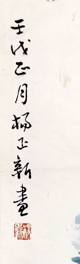 壬戌正月楊正新畫